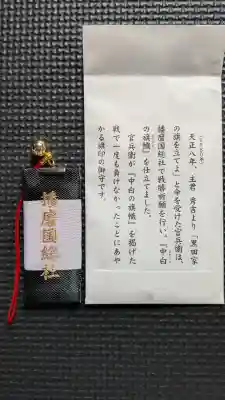 天正八年、主君　秀吉より「黒田家
の旗を立てよ」と命を受けた官兵衛は、
播磨国総社で戦勝祈願を行い、『中白
の旗幟』を仕立てました。
官兵衛が『中白の旗幟』を掲げた
戦で一度も負けなかったことにあや
かる旗印の御守です。
播磨国総社